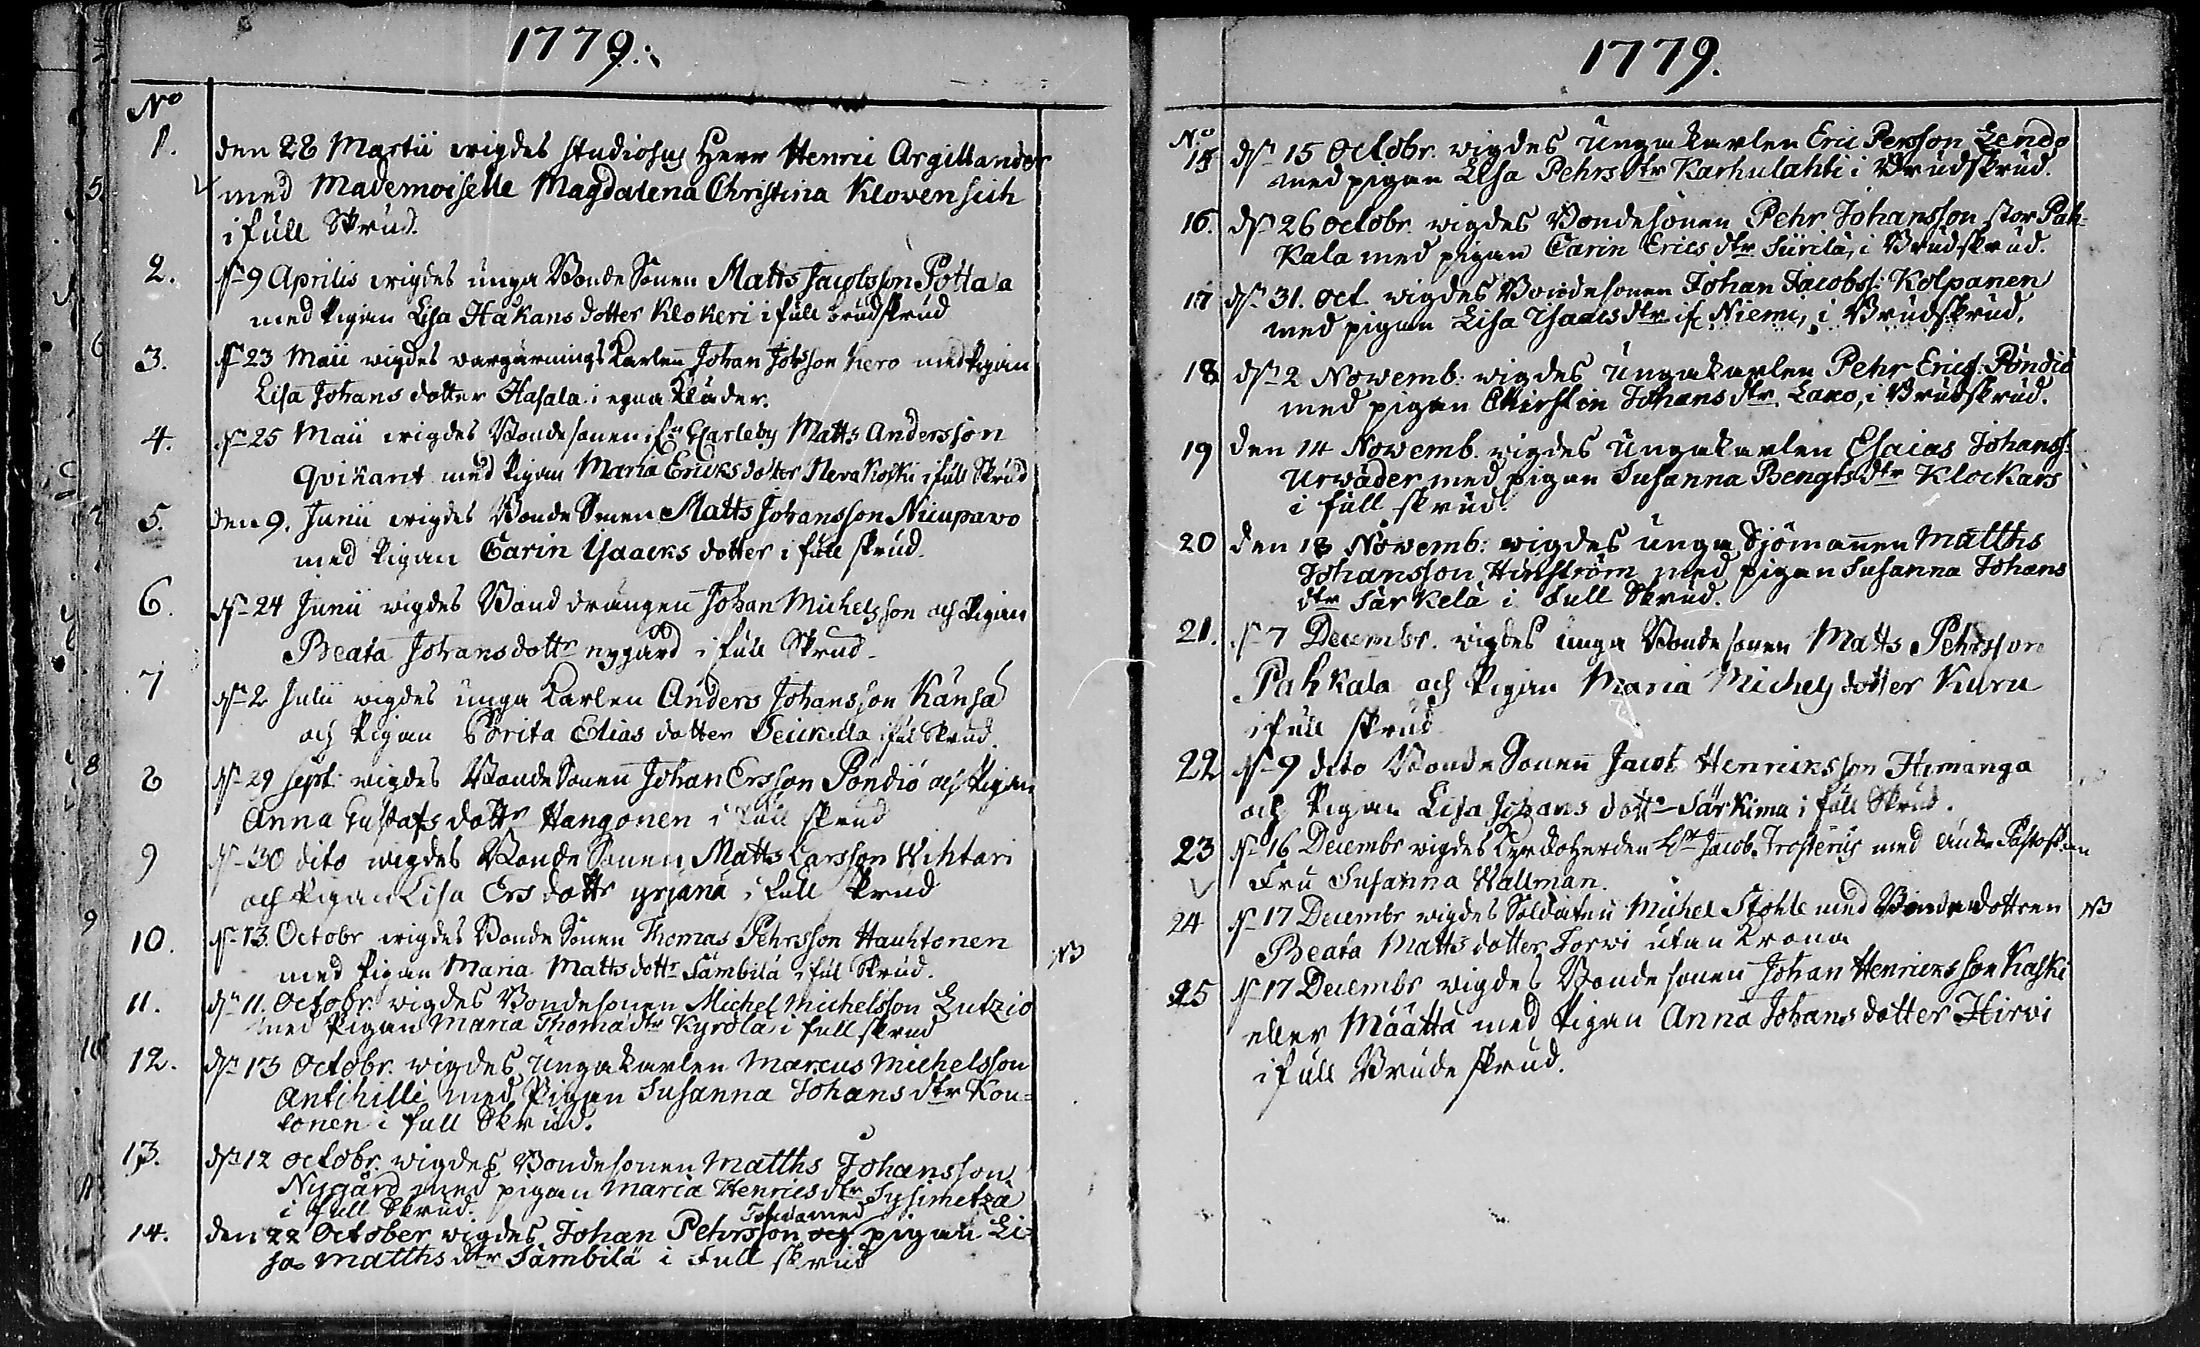 1779.
No
1. den 28 Martii wigdes studiosus Herr Henric Argillander
med Mademoiselle Magdalena Christina Klovensich
i full Skrud.
2. dn 9 Aprilis wigdes unga Bonde Sonen Matts Jacobsson Pottala
med Pigan Lisa Håkans dotter Klokeri i full brudskrud
3. dn 23 Maii wigdes wargernings Karlen Johan Johsson Kero med Pigan
Lisa Johans dotter Hasala i egna kläder.
4. dn 25 Maii wigdes Bondesonen ifrn Carleby Matts Andersson
Qvikant med Pigan Maria Ericks dotter Neva Koski i full Skrud
5. den 9. Junii wigdes Bonde Sonen Matts Johansson Nicupawo
med Pigan Carin Ysaacks dotter i full skrud.
6. dn 24 Junii wigdes Bond drängen Johan Michelsson och Pigan
Beata Johansdottr nygård i full Skrud.
7 dn 2 Julii wigdes unga Karlen Anders Johansson Känsä
och Pigan Brita Elias dotter Peickula i full Skrud.
8 dn 29 Sept. wigdes Bonde Sonen Johan Ersson Pöndiö och Pigan
Anna Gustafs dottr Hangonen i full skrud
9 dn 30 dito wigdes Bonde Sonen Matts Larsson Wihtari
och Pigan Lisa Ers dottr yrjänä i full skrud
10. dn 13. Octobr wigdes Bonde Sonen Thomas Pehrsson Hauhtonen
med Pigan Maria Matts dottr Sämbilä i full Skrud. NB
11. dn 11. Octobr. wigdes Bondesonen Michel Michelsson Lutzio
med Pigan Maria Thomæ dtr Kyrölä i full skrud
12. dn 13 Octobr. wigdes Ungakarlen Marcus Michelsson
Anthilli med Pigan Susanna Johans dtr Kou=
tonen i full Skrud.
13. dn 12 octobr. wigdes Bondesonen Matths Johansson
Nygård med pigan Maria Henrics dtr Sysimetzä
i full Skrud.
14. den 22 October wigdes Johan Pehrsson med pigan Li=
sa Matths dtr Sämbilä i Full skrud
1779.
No
15 dn 15 Octobr. wigdes Ungakarlen Eric Persson Lendo
med pigan Lisa Pehrs dtr Karhulahti i Brudskrud.
16. dn 26 octobr. wigdes Bondesonen Pehr Johansson stor Pah=
Kala med pigan Carin Erics dtr Siirilä, i Brudskrud.
17 dn 31. Oct. wigdes Bondesonen Johan Jacobss: Kolpanen
med pigan Lisa Ysaacs dtr if. Niemi, i Brudskrud.
18 dn 2 Novemb. wigdes Ungakarlen Pehr Erics. Pöndiö
med pigan Chirstin Johans dtr Lako, i Brudskrud.
19 den 14 Novemb. wigdes Ungakarlen Esaias Johanss:
Urwäder med pigan Susanna Bengts dtr Klockars
i full skrud.
20 den 18 Novemb: wigdes unga Sjömannen Matths
Johansson Hinström med pigan Susanna Johans
dtr Särkelä i Full Skrud.
21. dn 7 Decembr. wigdes unga Bonde sonen Matts Pehrsson
Pahkala och Pigan Maria Michels dotter Kuru
i full skrud
22 dn 9 dito Bonde Sonen Jacob Henriksson Himanga
och Pigan Lisa Johans dottr Särkima i full Skrud.
23 dn 16 Decembr wigdes Kyrckoherden Hr Jacob Frosterus med Encke
Fru Susanna Wallman.
24 dn 17 Decembr wigdes Soldaten Michel Stohle med Bondedottren NB
Beata Matts dotter Torwi utan krona
25 dn 17 Decembr wigdes Bonde sonen Johan Henricksson Kaski
eller Määttä med Pigan Anna Johans dotter Hirvi
i full Brude skrud.